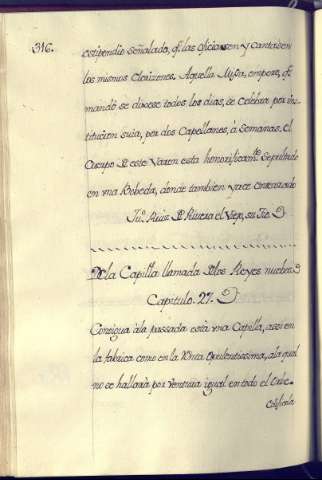 316.
estipendio señalado, q̃ las oficiassen y cantassen
los mismos Clerizones. Aquella Missa, empero, q̃
mandó se dixese todos los dias, se celebra por ins-
titucion suia, por dos Capellanes, à semanas. el
Cuerpo de este Varon esta honorificam.te Sepultado
en vna Bobeda, donde tambien yace enterrado
Ju.º Ruiz de Riuera el Viejo, su Tio
De la Capilla llamada de los Reyes nuebos
Capitulo. 27.
Contigua à la passada esta vna Capilla, assi en
la fabrica como en la Renta Opulentissima, à la qual
no se hallarà por ventura igual en todo el Orbe.
Edificola